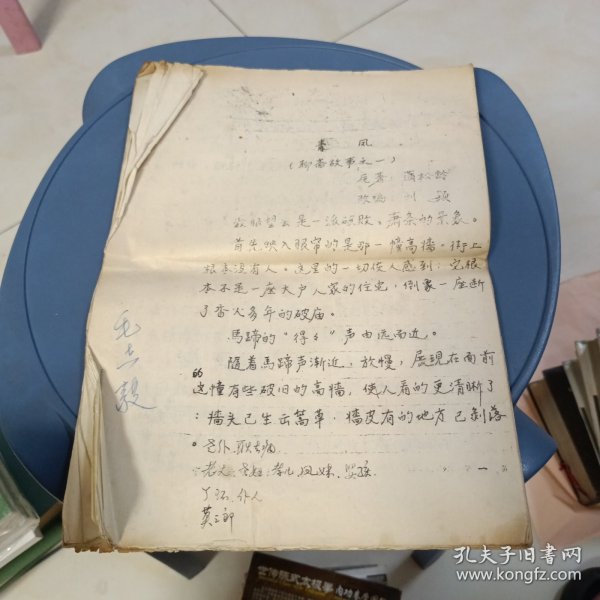 青凤
（聊斋故事之一）
原著 蒲松龄
改编 刘颖
望去是一派颓败、萧条的景象。
首先映入眼帘的是那一幢高墙。街上
根本没有人。这里的一切使人感到：它根
本不是一座大户人家的住宅，倒象一座断
了香火多年的破庙。
馬蹄的“得々”声由远而近。
隨着馬蹄声渐近、放慢，展現在面前
这幢有些破旧的高墙，使人看的更清晰了
：墙头已生出蒿草，墙皮有的地方已剝落
。老仆
老夫 孝儿
丫环、仆人
莫三郎
孔夫子旧书网
www.kongfz.com